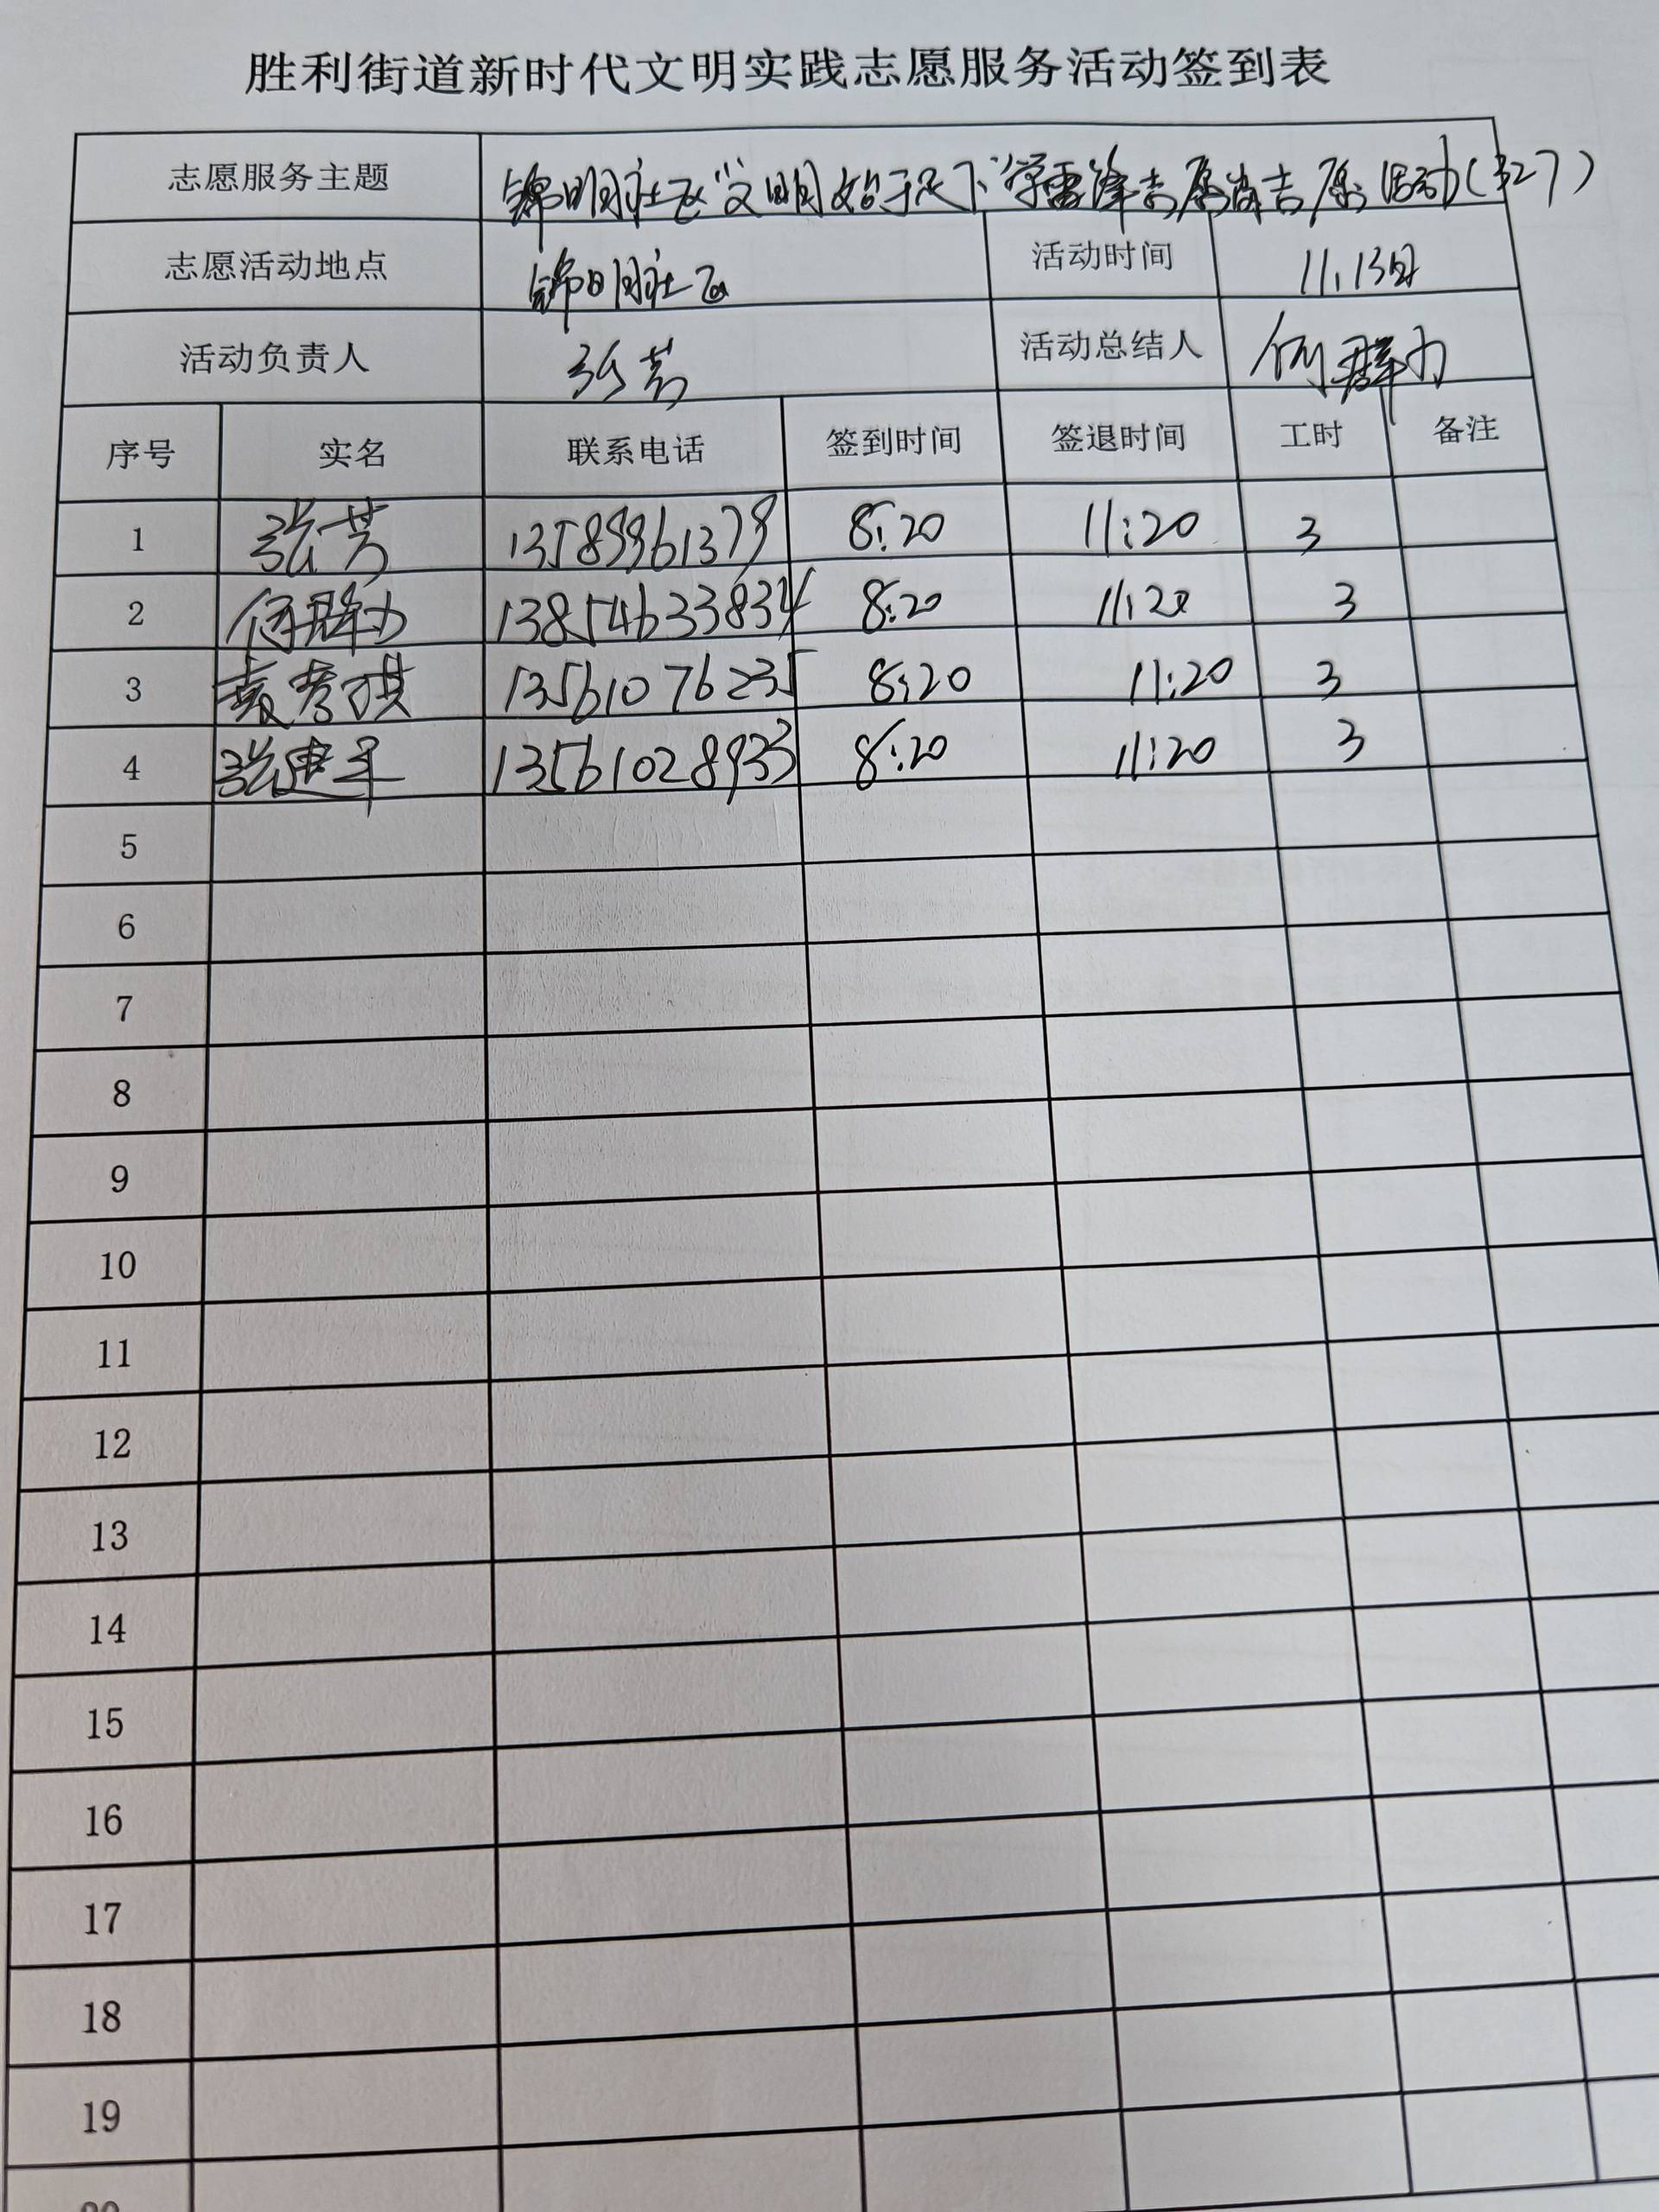 胜利街道新时代文明实践志愿服务活动签到表
志愿服务主题 锦明社区"文明始于足下"学雷锋志愿 志愿活动(327)
志愿活动地点 锦明社区 活动时间 11.13日
活动负责人 张芳 活动总结人 何群力
序号 实名 联系电话 签到时间 签退时间 工时 备注
1 张芳 13589961379 8:20 11:20 3
2 何群力 13854633834 8:20 11:20 3
3 袁秀琪 13561076235 8:20 11:20 3
4 张建军 13561028933 8:20 11:20 3
5
6
7
8
9
10
11
12
13
14
15
16
17
18
19
20